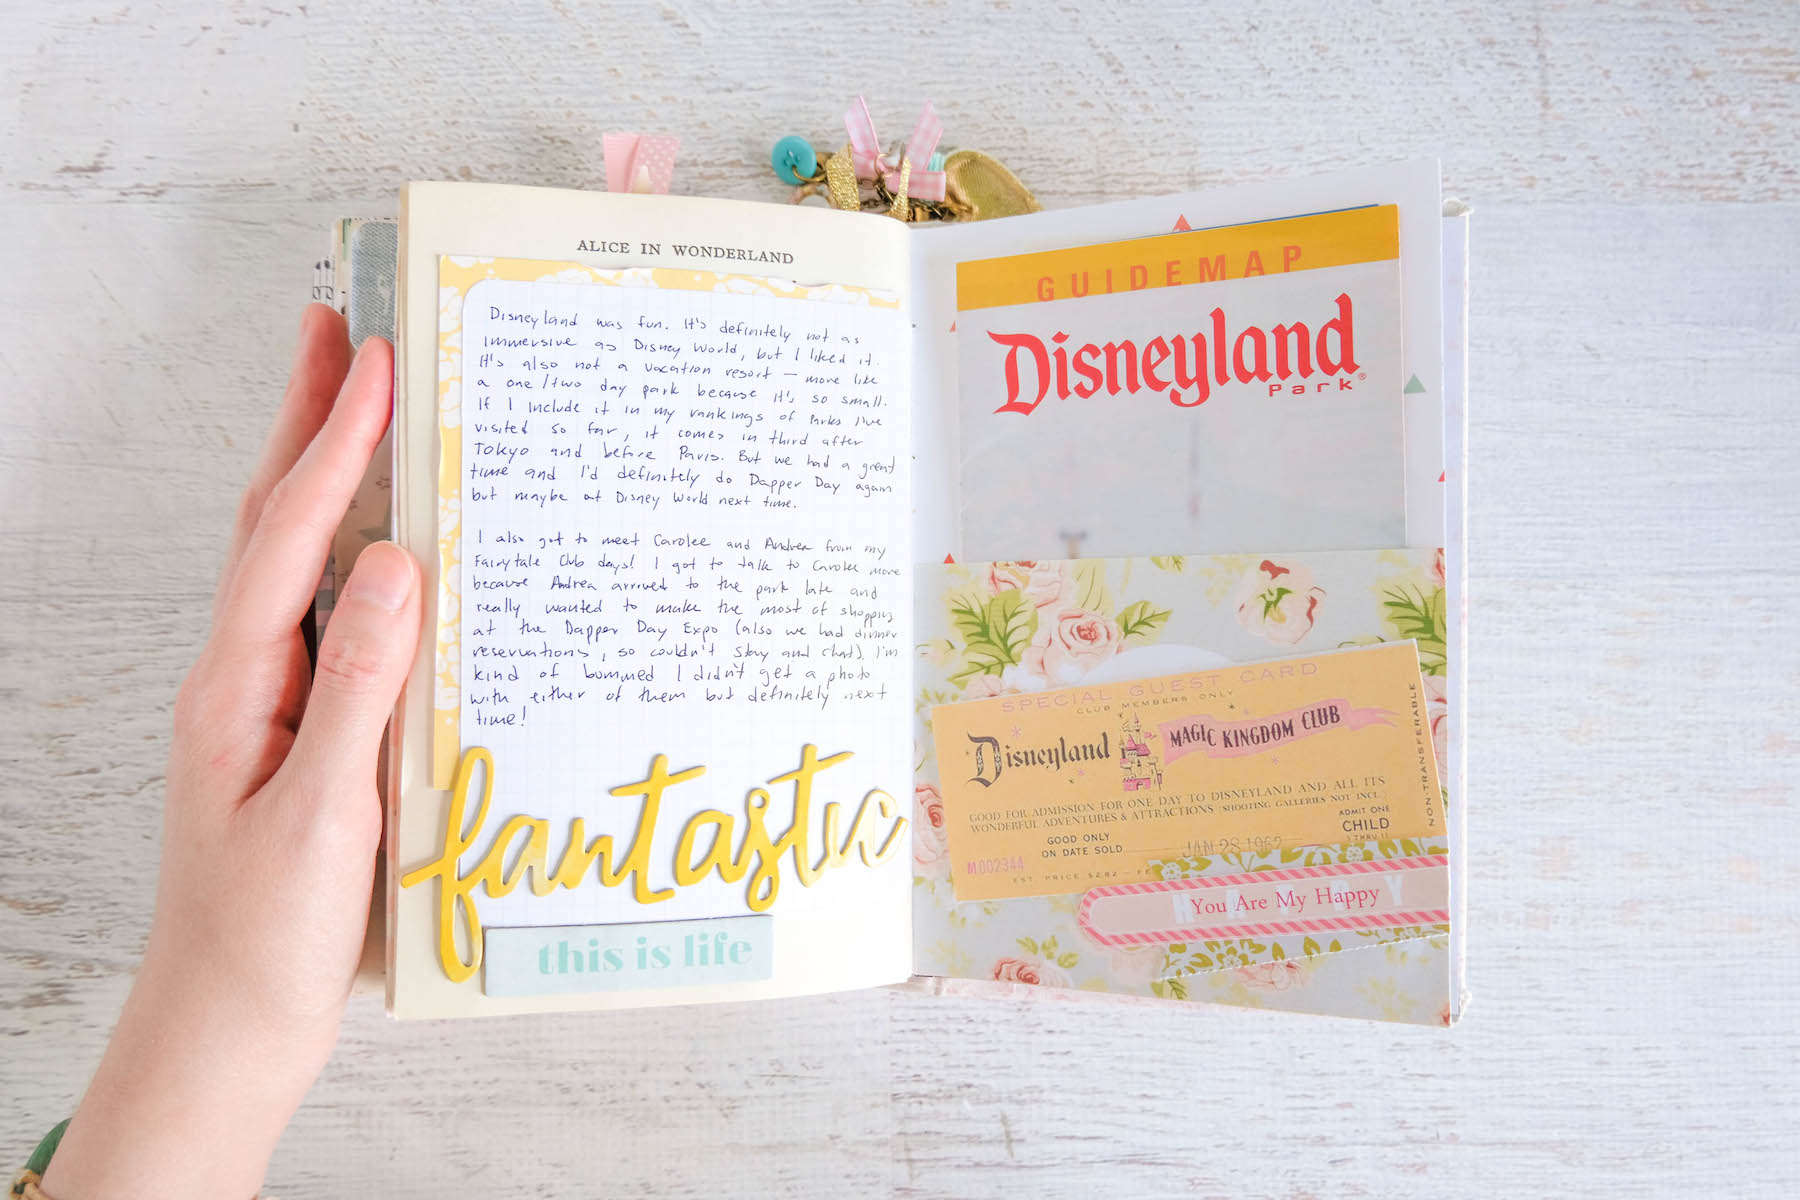 ALICE IN WONDERLAND
Disneyland was fun. It's definitely not as
immersive as Disney World, but I liked it.
It's also not a vacation resort — more like
a one/two day park because it's so small.
If I include it in my rankings of Parks I've
visited so far, it comes in third after
Tokyo and before Paris. But we had a great
time and I'd definitely do Dapper Day again
but maybe at Disney World next time.
I also got to meet Carolee and Andrea from my
Fairytale Club days! I got to talk to Carolee more
because Andrea arrived to the park late and
really wanted to make the most of shopping
at the Dapper Day Expo (also we had dinner
reservations, so couldn't stay and chat). I'm
kind of bummed I didn't get a photo
with either of them but definitely next
time!
fantastic
this is life
GUIDEMAP
Disneyland
Park®
SPECIAL GUEST CARD
CLUB MEMBERS ONLY
Disneyland MAGIC KINGDOM CLUB
GOOD FOR ADMISSION FOR ONE DAY TO DISNEYLAND AND ALL ITS
WONDERFUL ADVENTURES & ATTRACTIONS (SHOOTING GALLERIES NOT INCL.)
GOOD ONLY
ON DATE SOLD
JAN 28 1962
ADMIT ONE
CHILD
3 THRU 11
NON-TRANSFERABLE
M002344
EST. PRICE $2.82 – FE
You Are My Happy